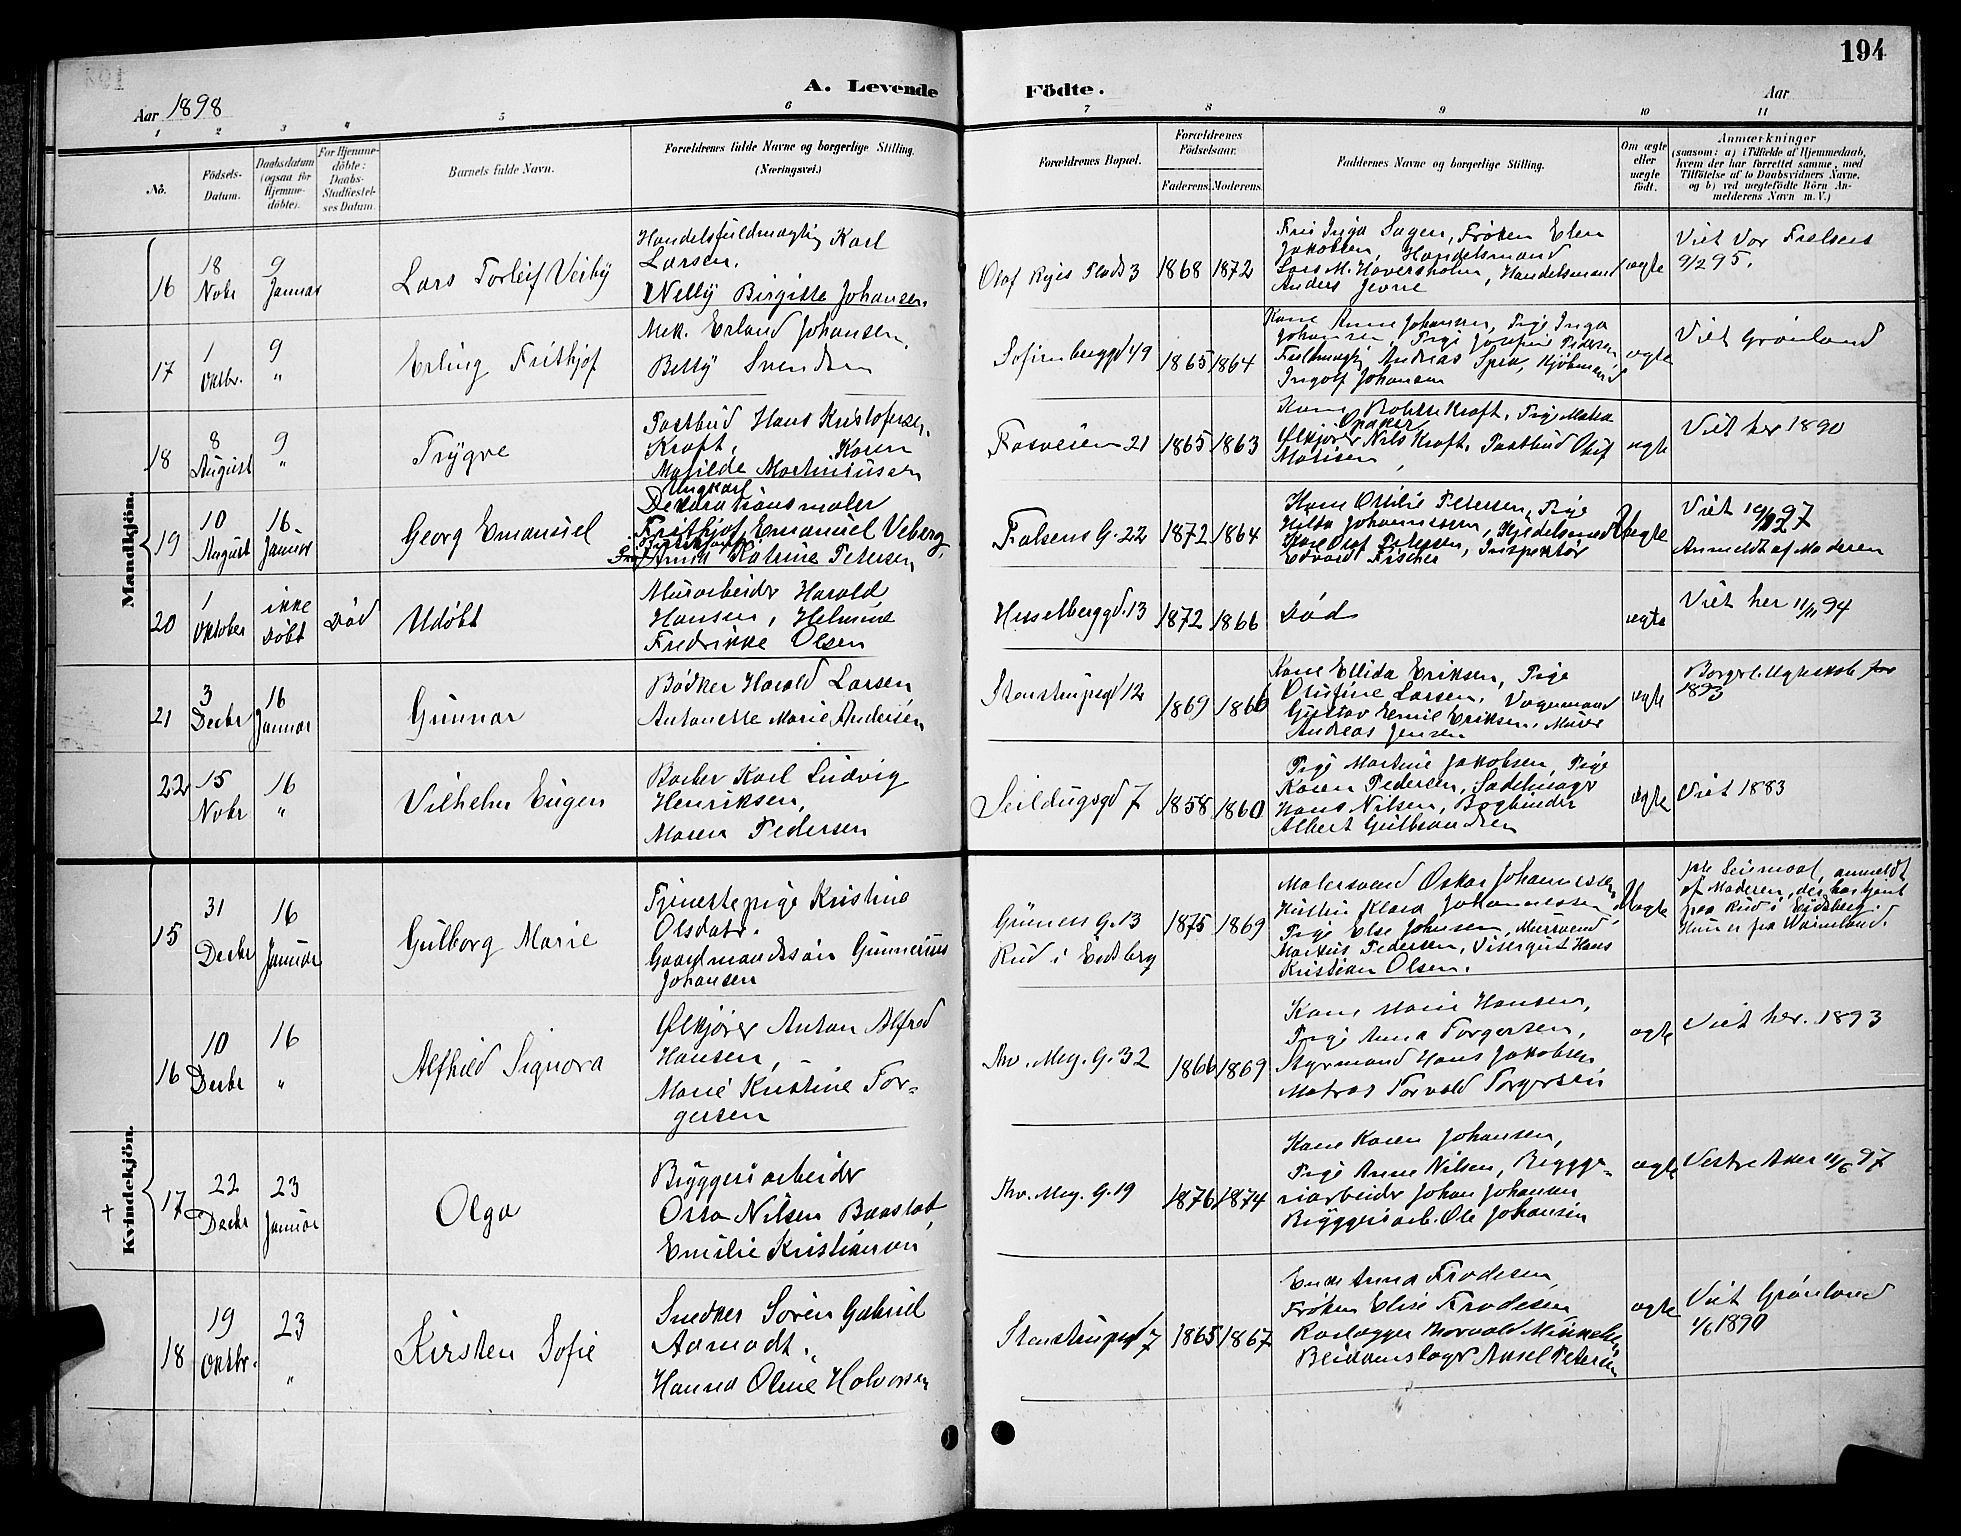 194
Aar 1898
A. Levende Födte.
Aar
1 2 3 4 5 6 7 8 9 10 11
No.
Födsels-Datum.
Daabsdatum (ogsaa for Hjemme-döbte).
For Hjemme-döbte: Daabs-Stadfæstel-ses Datum.
Barnets fulde Navn.
Forældrenes fulde Navne og borgerlige Stilling.
(Næringsvei.)
Forældrenes Bopæl.
Forældrenes Födselsaar.
Faderens. Moderens.
Faddernes Navne og borgerlige Stilling.
Om ægte eller uægte födt.
Anmærkninger
(saasom: a) i Tilfælde af Hjemmedaab, hvem der har forrettet samme, med Tilföielse af to Daabsvidners Navne, og b) ved uægtefödte Börn An-melderens Navn m. V.)
Mandkjön.
16
18 Nobr
9 Januar
Lars Torleif Veiby
Handelsfuldmægtig Karl
Larsen.
Nelly Birgitte Johansen.
Olaf Ryes Plads 3
1868 1872
Frøken Elen
Jakobsen, Handelsmand
Lars M. Haversholm, Handelsmand
Anders Jevne
ægte
Viet Vor Frelsers
9/2 95.
17
1 Oktbr.
9 "
Erling Frithjof
Mek. Erland Johansen,
Betty Svendsen
Sofienberggd 49
1865 1864
Kone Anne Johansen, Pige Inga
Johansen, Pige Josefine Pedersen,
Fuldmægtig Andreas
Ingolf Johansen
ægte
Viet Grønland
18
8 August
9 "
Trygve
Postbud Hans Kristofersen
Kraft, Karen
Matilde Martiniussen
Fossveien 21
1865 1863
Kone
Ølkjører Nils Kraft, Postbud Oluf
Matisen
ægte
Viet her 1890
19
10 August
16 Januar
Georg Emanuel
Ungkarl
Dekorationsmaler
Frithjof Emanuel Veberg
Anna Katrine Petersen
Falsens G. 22
1872 1864
Kone Ottilie Petersen, Pige
Hilda Johannessen, Kjedelsmed
Karl Olaf Petersen, Inspektør
Edvard Fischer
Uægte
Anmeldt af Moderen
20
1 Oktober
ikke døbt
Død
Udøbt
Murarbeider Harald
Hansen, Helmine
Fredrikke Olsen
Hesselberggd. 13
1872 1866
Død
ægte
Viet her 11/11 94
21
3 Decbr
16 Januar
Gunnar
Bødker Harald Larsen
Antonette Marie Andersen
Stenstrupsgd 12
1869 1866
Kone Ellida Eriksen, Pige
Larsen, Vognmand
Gustav Emil Eriksen, Murer
Andreas Jensen
ægte
Borgerl. Ægteskab
1893
22
15 Nobr
16 "
Vilhelm Eugen
Barber Karl Ludvig
Henriksen,
Maren Pedersen
Seildugsgd 7
1858 1860
Pige Martine Jakobsen, Pige
Karen Pedersen, Sadelmager
Hans Nilsen, Bogbinder
Albert Gulbrandsen
ægte
Viet 1883
Kvindekjön.
15
31 Decbr
16 Januar
Gulborg Marie
Tjenestepige Kristine
Olsdatr.
Gaardmandssøn Gunnerius
Johansen
Grüners G. 13
Rud i Eidsberg
1875 1869
Malersvend Oskar Johannessen,
Hustru Klara Johannessen,
Pige Else Johnsen, Mursvend
Martius Pedersen, Visergut Hans
Kristian Olsen.
Uægte
1ste Leiermaal, anmeldt
af Moderen, der har tjent
paa Rud i Eidsberg.
Hun er fra Värmland.
16
10 Decbr
16 "
Alfhild Signora
Ølkjører Anton Alfred
Hansen,
Marie Kristine Tor-
gersen
Thv. Mey. G. 32
1866 1869
Kone Marie Hansen,
Pige Anna Torgersen,
Styrmand Hans Jakobsen
Matros Torvald Torgersen
ægte
Viet her. 1893
† 17
22 Decbr
23 Januar
Olga
Bryggeriarbeider
Otto Nilsen Baastad,
Emilie Kristiansen
Thv. Mey. G. 19
1876 1874
Kone Karen Johansen,
Pige Anne Nilsen, Brygge-
riarbeider Johan Johansen
Bryggeriarb. Ole Johansen
ægte
Vestre Aker 11/6 97
18
19 Oktbr.
23 "
Kirsten Sofie
Snedker Sören Gabriel
Aamodt,
Hanna Oline Halvorsen
Stenstrupsgd 7
1865 1867
Enke Anna Frodesen
Frøken Elise Frodesen,
Rørlægger Thorvald
Petersen
ægte
Viet Grønland
1/6 1890